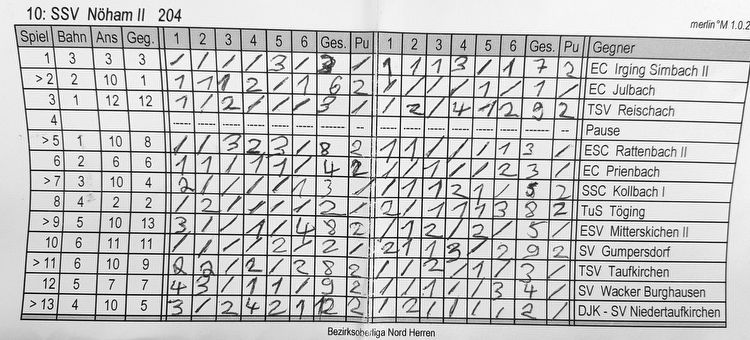 10: SSV Nöham II 204
merlin°M 1.0.2
Spiel Bahn Ans Geg. 1 2 3 4 5 6 Ges. Pu 1 2 3 4 5 6 Ges. Pu Gegner
1 3 3 3 / / / / 3 / 3 / 1 1 1 3 / 1 7 2 EC Irging Simbach II
> 2 2 10 1 1 1 1 2 / 1 6 2 / / / / 1 / 1 / EC Julbach
3 1 12 12 1 / 2 / / / 3 / / 2 / 4 1 2 9 2 TSV Reischach
4 ----- ----- ----- ----- ----- ----- ----- -- ----- ----- ----- ----- ----- ----- ----- -- Pause
> 5 1 10 8 / / 3 2 3 / 8 2 1 1 / / / 1 3 / ESC Rattenbach II
6 2 6 6 1 1 / 1 1 / 4 2 / / 1 / / 2 3 / EC Prienbach
> 7 3 10 4 2 / / / / 1 3 / / 1 1 2 1 / 5 2 SSC Kollbach I
8 4 2 2 / 2 / / / / 2 / 2 / 1 1 1 3 8 2 TuS Töging
> 9 5 10 13 3 / / 1 / 4 8 2 / 1 2 / 2 / 5 / ESV Mitterskichen II
10 6 11 11 / / / / 2 / 2 / 2 1 1 3 / 2 9 2 SV Gumpersdorf
> 11 6 10 9 2 2 / 2 / 2 8 2 / / 2 / 1 / 3 / TSV Taufkirchen
12 5 7 7 4 3 / 1 1 / 9 2 / / 1 / / 3 4 / SV Wacker Burghausen
> 13 4 10 5 3 / 2 4 2 1 12 2 / 2 / / / / 2 / DJK - SV Niedertaufkirchen
Bezirksoberliga Nord Herren